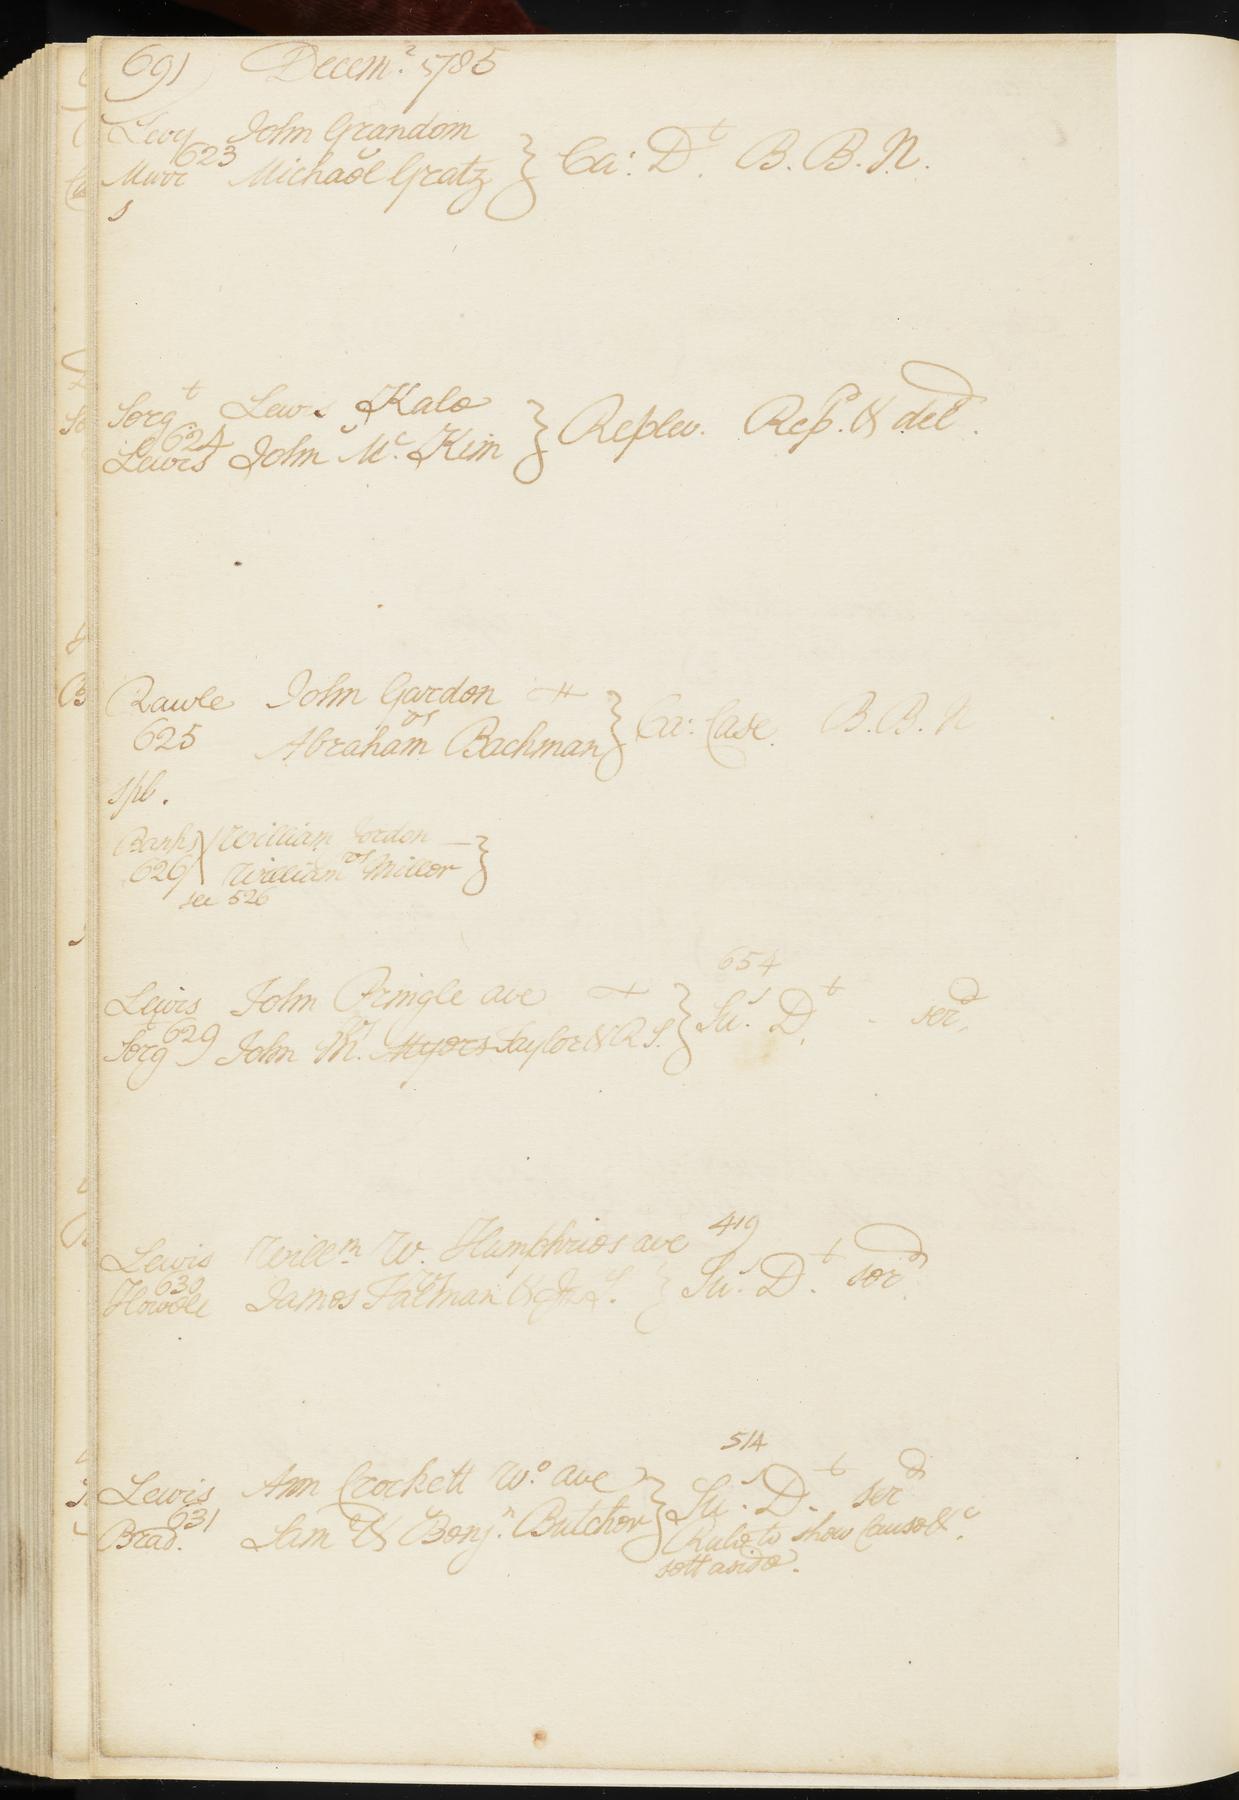 691) Decem.r 1785
Levy John Grandom
623
Murr Michael Gratz } Ca: D.t B. B. N.
s
Serg.t Lewis Kalo
624
Lewis John M.c Kim } Replev. Rep.d & del.d
Rawle John Gardon
625 vs Abraham Bachman } Ca: Case. B. B. N
spb.
Bank) William Jordon
626 vs William Miller }
see 526
654
Lewis John Pringle ave
629 vs } Su.s D.t ser.d
Serg John M. Myers Taylor & R S.
419
Lewis Will.m W. Humphries ave
630 vs } Su.s D.t ser.d
Howele James Talman &
514
Lewis Ann Crockett W.o ave
631 } Su.s D.t ser.d
Brad. Sam.l & Benj.n Butcher
Rule to show Cause &c.
sett aside.